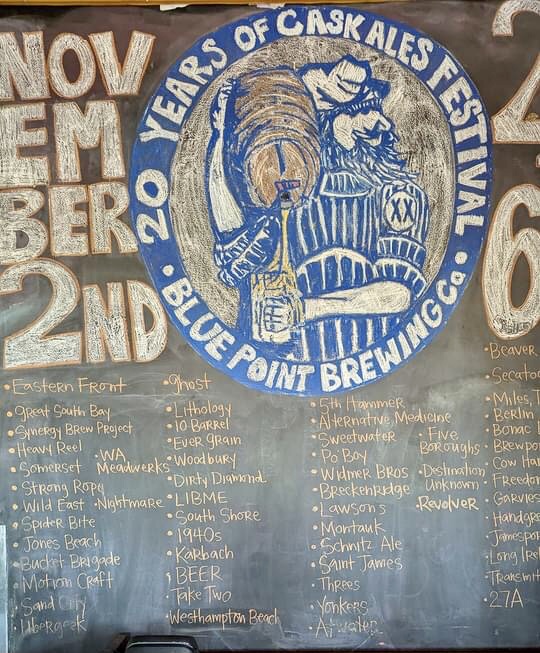 NOV
EM
BER
2ND
20 YEARS OF CASK ALES FESTIVAL
• BLUE POINT BREWING Co. •
XX
2
6
• Eastern Front
• Great South Bay
• Synergy Brew Project
• Heavy Reel
• Somerset
• WA Meadwerks
• Strong Rope
• Wild East
• Nightmare
• Spider Bite
• Jones Beach
• Bucket Brigade
• Motion Craft
• Sand City
• Ubergeek
• Ghost
• Lithology
• 10 Barrel
• Ever Grain
• Woodbury
• Dirty Diamond
• LIBME
• South Shore
• 1940s
• Karbach
• BEER
• Take Two
• Westhampton Beach
• 5th Hammer
• Alternative Medicine
• Sweetwater
• Po Boy
• Widmer Bros
• Breckenridge
• Lawsons
• Montauk
• Schnitz Ale
• Saint James
• Threes
• Yonkers
• Atwater
• Five
Boroughs
• Destination
Unknown
• Revolver
• Beaver
• Secatog
• Miles, T
• Berlin
• Bonac
• Brewpor
• Cow Ha
• Freedo
• Garvies
• Handgra
• Jamespor
• Long Ire
• Transmit
• 27A